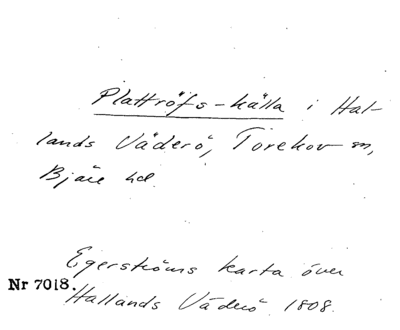 Plattröfs-källa i Hal-
lands Väderö, Torekov sn,
Bjäre hd.
Egerströms karta över
Nr 7018.
Hallands Väderö 1808.